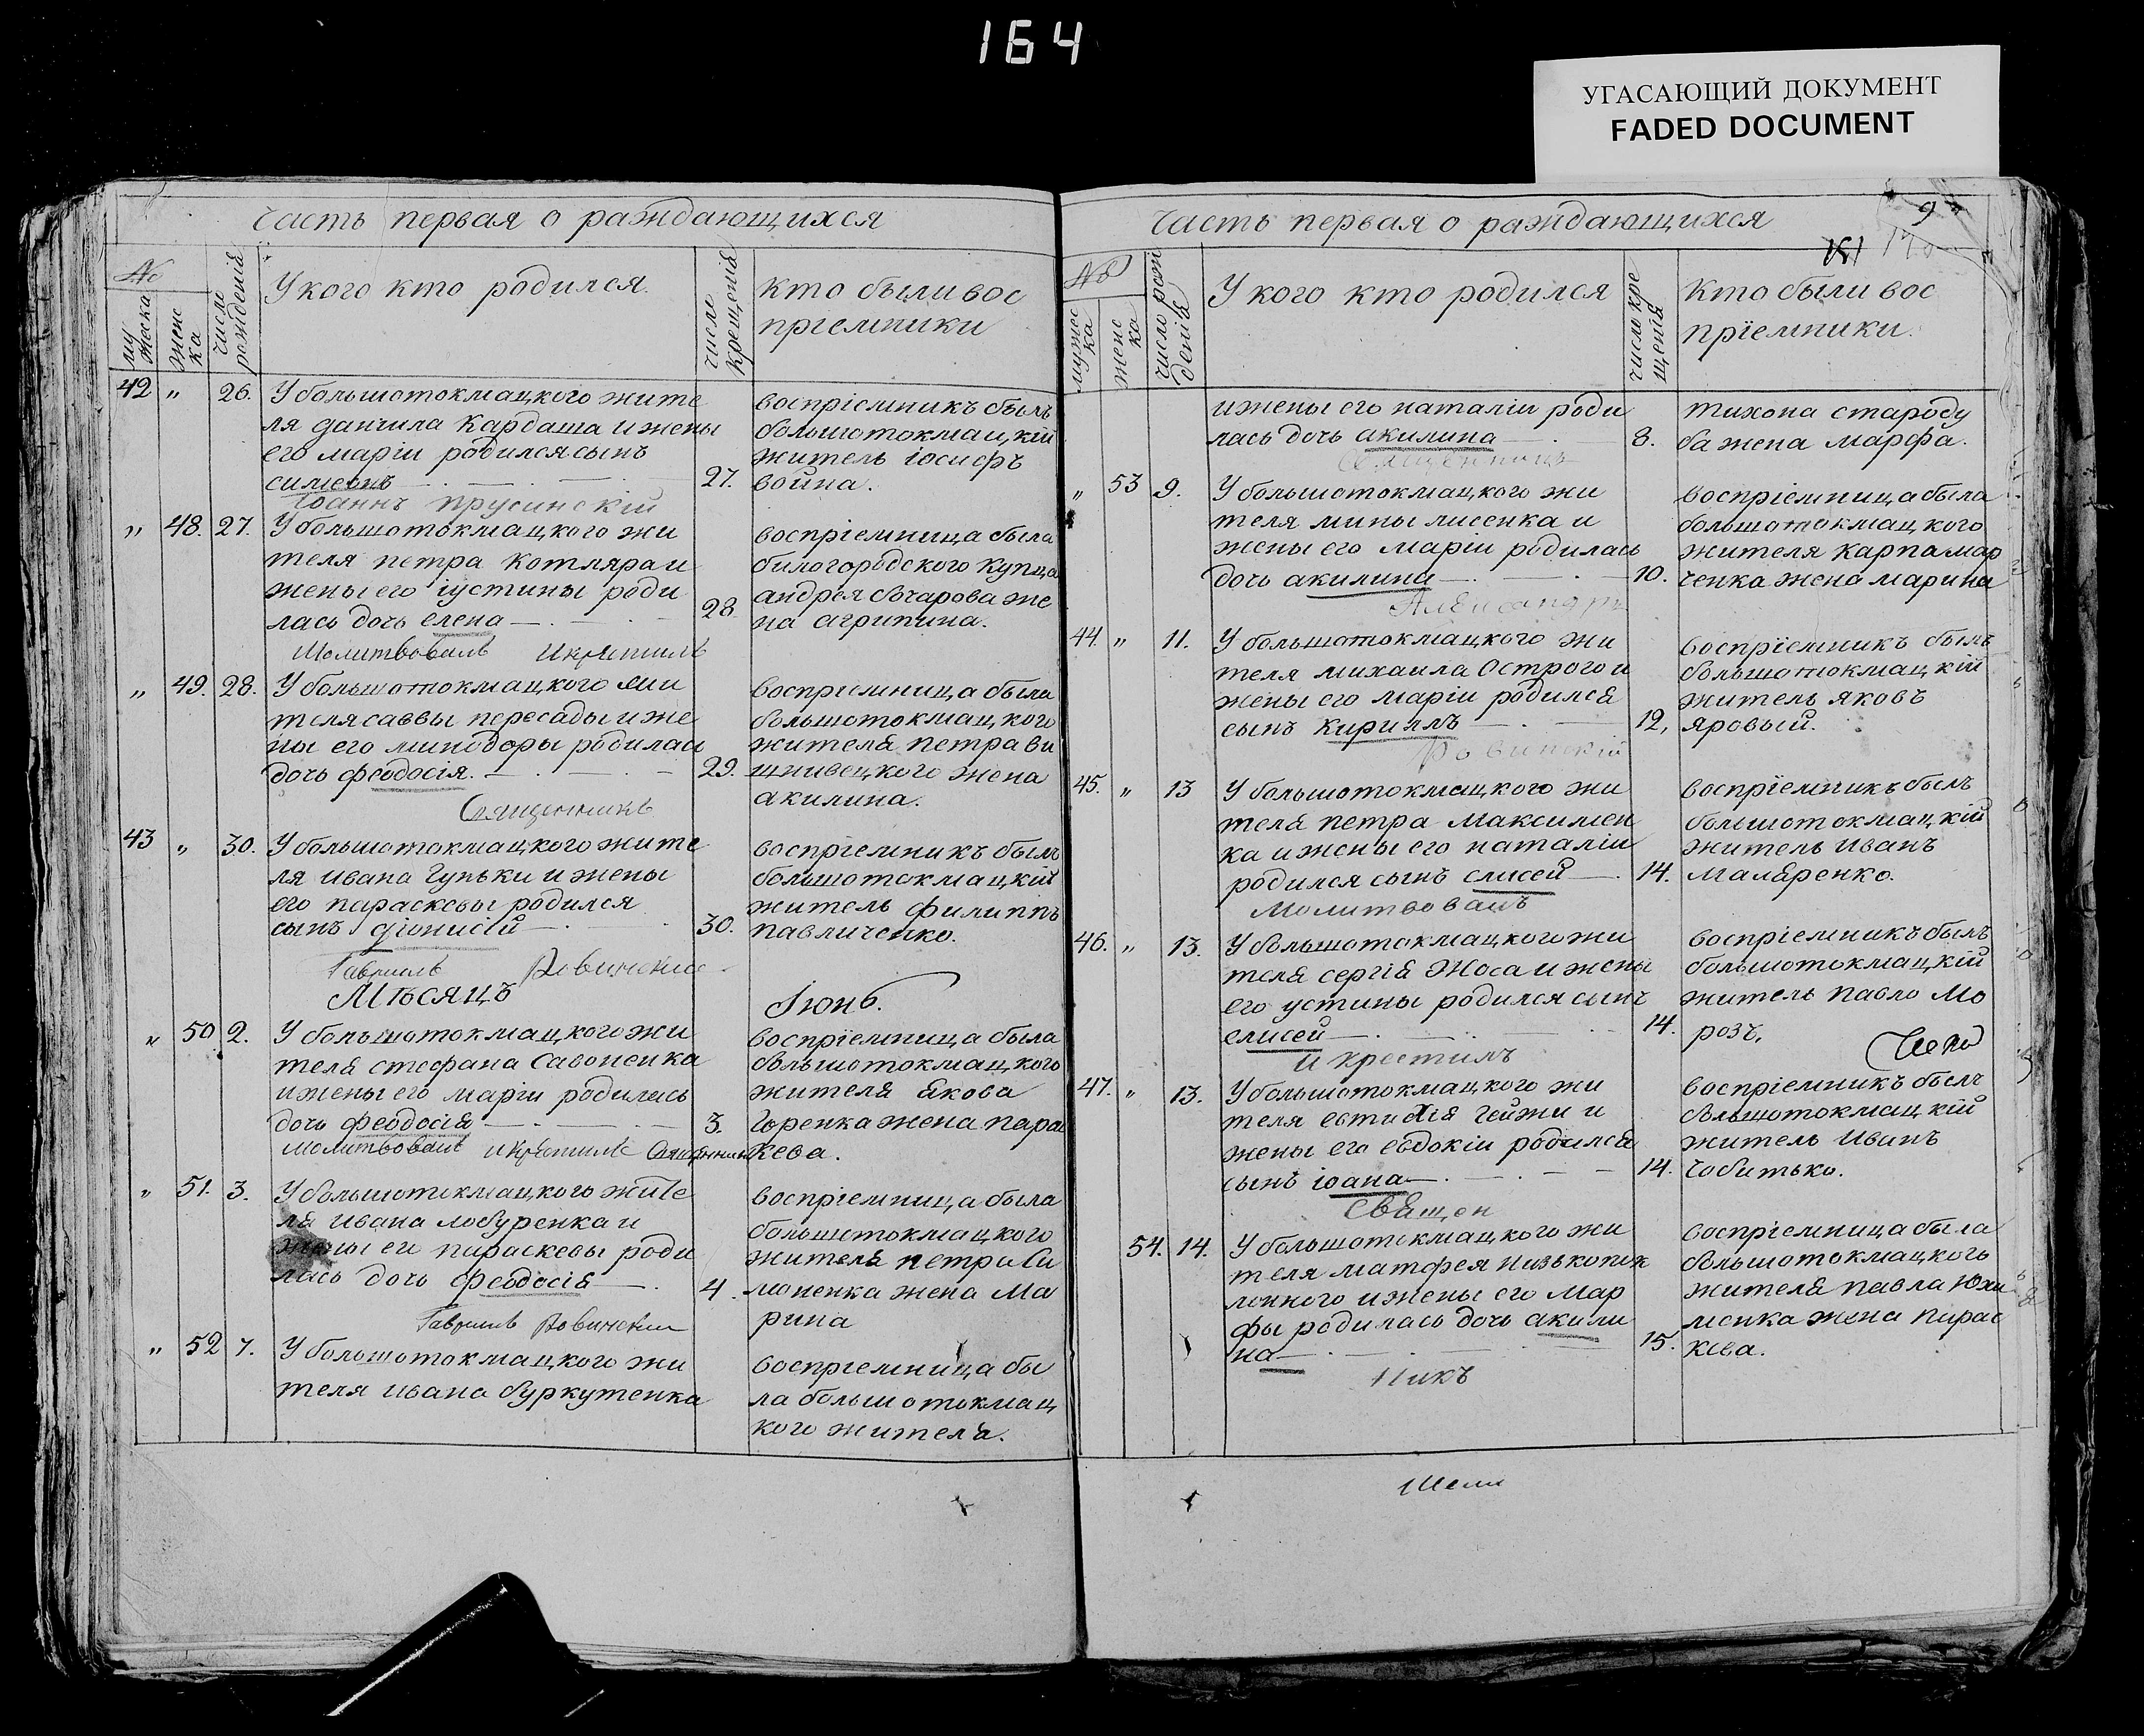 164
УГАСАЮЩИЙ ДОКУМЕНТ
FADED DOCUMENT
Часть первая о раждающихся
№
му жеска
женс ка
число рожденія
У кого кто родился.
число крещенія
кто были вос
пріемники
42 „ 26. У большотокмацкого жите
ля данчила Кардаша и жены
его маріи родился сынъ
симеонъ 27.
воспріемникъ былъ
большотокмацкій
житель іосифъ
война.
Іоаннъ Прусинскій
„ 48. 27. У большотокмацкого жи
теля петра Котляра и
жены его іустины роди
лась дочь елена 28
воспріемница была
билогородского купца
андрея Овчарова же
на агрипина.
Молитвовалъ и крестилъ
„ 49. 28. У большотокмацкого жи
теля саввы пересады и же
ны его минодоры родилась
дочь феодосія. 29.
воспріемница была
большотокмацкого
жителя петра ви
щнивецкого жена
акилина.
Священникъ
43 „ 30. У большотокмацкого жите
ля ивана Гуньки и жены
его параскевы родился
сынъ діонисій 30.
воспріемникъ былъ
большотокмацкій
житель филиппъ
павличенко.
Гавриилъ Ровинскій
Мѣсяцъ Іюнь.
„ 50 2. У большотокмацкого жи
теля стефана Савоненка
и жены его маріи родилась
дочь феодосія 3.
воспріемница была
большотокмацкого
жителя якова
Горенка жена пара
кева.
Молитвовалъ и крестилъ Священникъ
„ 51. 3. У большотокмацкого жите
ля ивана лобуренка и
жены его параскевы роди
лась дочь феодосія 4.
воспріемница была
большотокмацкого
жителя петра Си
моненка жена Ма
рина
Гавриилъ Ровинскій
„ 52 7. У большотокмацкого жи
теля ивана буркутенка
воспріемница бы
ла большотокмац
кого жителя.
Часть первая о раждающихся
9
№
мужес ка
женс ка
число рож денія
У кого кто родился
число кре щенія
кто были вос
пріемники.
и жены его наталіи роди
лась дочь акилина 8.
тихона староду
ба жена марфа.
Священникъ
„ 53 9. У большотокмацкого жи
теля мины лисенка и
жены его маріи родилась
дочь акилина 10.
воспріемница была
большотокмацкого
жителя карпа мар
ченка жена марина
Александръ
44. „ 11. У большотокмацкого жи
теля михаила Острого и
жены его маріи родился
сынъ кириллъ 12,
воспріемникъ былъ
большотокмацкій
житель яковъ
яровый.
Ровинскій
45. „ 13 У большотокмацкого жи
теля петра Максимен
ка и жены его наталіи
родился сынъ елисей 14.
воспріемникъ былъ
большотокмацкій
житель иванъ
маляренко.
Молитвовалъ
46. „ 13. У большотокмацкого жи
теля сергія Жоса и жены
его устины родился сынъ
елисей 14.
воспріемникъ былъ
большотокмацкій
житель павло Мо
розъ.
и крестилъ
47. „ 13. У большотокмацкого жи
теля евтихія Гейжи и
жены его евдокіи родился
сынъ іоана 14.
воспріемникъ былъ
большотокмацкій
житель иванъ
Чобитько.
Священ
54. 14. У большотокмацкого жи
теля матфея
лонного и жены его мар
фы родилась дочь акили
на 15.
воспріемница была
большотокмацкого
жителя павла Юхи
менка жена парас
кева.
никъ